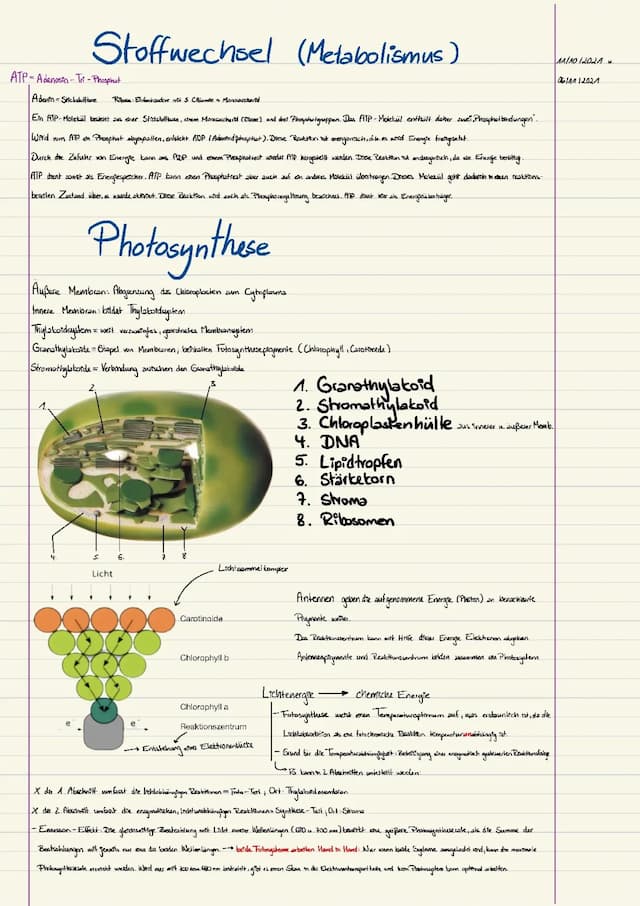 Stoffwechsel (Metabolismus)
11/10/2021 u.
06/11/2021
ATP - Adenosin - Tri - Phosphat
Adenin = Stickstoffbase
Ein ATP-Molekül besteht aus einer Stickstoffbase, einem Monosaccharid (Ribose) und drei Phosphatgruppen. Das ATP-Molekül enthält daher zwei „Phosphatbindungen".
Wird vom ATP ein Phosphat abgespalten, entsteht ADP (Adenosindiphosphat). Diese Reaktion ist exergonisch, da es wird Energie freigesetzt.
Durch die Zufuhr von Energie kann aus ADP und einem Phosphatrest wieder ATP hergestellt werden. Diese Reaktion ist endergonisch, da sie Energie benötigt.
ATP dient somit als Energiespeicher. ATP kann einen Phosphatrest aber auch auf ein anderes Molekül übertragen. Dieses Molekül geht dadurch in einen reaktions-
bereiten Zustand über, es wurde aktiviert. Diese Reaktion wird auch als Phosphorylierung bezeichnet. ATP dient hier als Energieüberträger.
Photosynthese
Äußere Membran: Abgrenzung des Chloroplasten zum Cytoplasma
Innere Membran: bildet Thylakoidsystem
Thylakoidsystem = weit verzweigtes, geordnetes Membransystem
Granathylakoide = Stapel von Membranen, beinhalten Fotosynthesepigmente (Chlorophyll, Carotinoide)
Stromathylakoide = Verbindung zwischen den Granathylakoide
1.
2.
3
4.
5
6.
7
8
1. Granathylakoid
2. Stromathylakoid
3. Chloroplastenhülle aus innerer u. äußerer Memb.
4. DNA
5. Lipidtropfen
6. Stärkekorn
7. Stroma
8. Ribosomen
Licht
Lichtsammelkomplex
Carotinoide
Chlorophyll b
Chlorophyll a
Reaktionszentrum
e⁻
e⁻
→ Entstehung einer Elektronenlücke
Antennen geben die aufgenommene Energie (Photon) an benachbarte
Pigmente weiter.
Das Reaktionszentrum kann mit Hilfe dieser Energie Elektronen abgeben.
Antennenpigmente und Reaktionszentrum bilden zusammen das Photosystem
Lichtenergie → chemische Energie
- Fotosynthese weist einen Temperaturoptimum auf, was erstaunlich ist, da die
Lichtabsorbtion als eine fotochemische Reaktion temperaturunabhängig ist.
- Grund für die Temperaturabhängigkeit: Beteiligung einer enzymatisch gesteuerten Reaktionsfolge
↳ FS kann in 2 Abschnitten unterteilt werden:
X der 1. Abschnitt umfasst die lichtabhängigen Reaktionen = Foto-Teil, Ort: Thylakoidmembranen
X der 2. Abschnitt umfasst die enzymatischen, lichtunabhängigen Reaktionen = Synthese-Teil, Ort: Stroma
- Emerson-Effekt: Die gleichzeitige Bestrahlung mit Licht zweier Wellenlängen (680 u. 700 nm) bewirkt eine größere Photosyntheserate, als die Summe der
Bestrahlungen mit jeweils nur einer der beiden Wellenlängen. → beide Fotosysteme arbeiten Hand in Hand: Nur wenn beide Systeme angeregt sind, kann die maximale
Photosyntheserate erreicht werden.